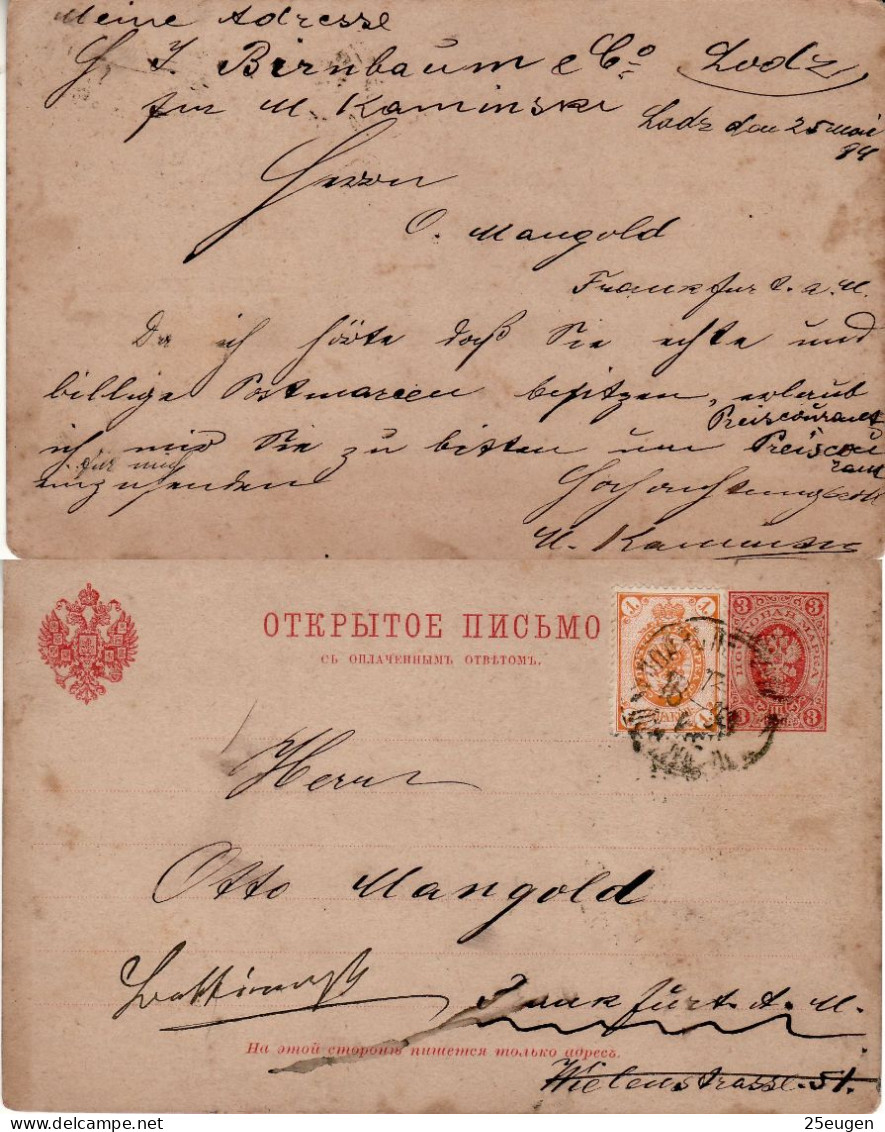 Meine Adresse
J. Birnbaum & Co Lodz
fur M. Kaminski
Lodz den 25 Mai
94
Herrn
O. Mangold
Frankfurt. a. M.
Da ich hörte daß Sie echte und
billige Postmarcen besitzen, erlaub
Preiscourant
ich mir Sie zu bitten um Preiscou
rant
für mich
einzusenden
Hochachtungsvoll
M. Kaminski
ОТКРЫТОЕ ПИСЬМО
СЪ ОПЛАЧЕННЫМЪ ОТВѢТОМЪ.
1 1
3 3
ПОЧТОВАЯ МАРКА
3 3
Herrn
Otto Mangold
Frankfurt. A. M.
На этой сторонѣ пишется только адресъ.
Wielenstrasse. 51.
25eugen
delcampe.net